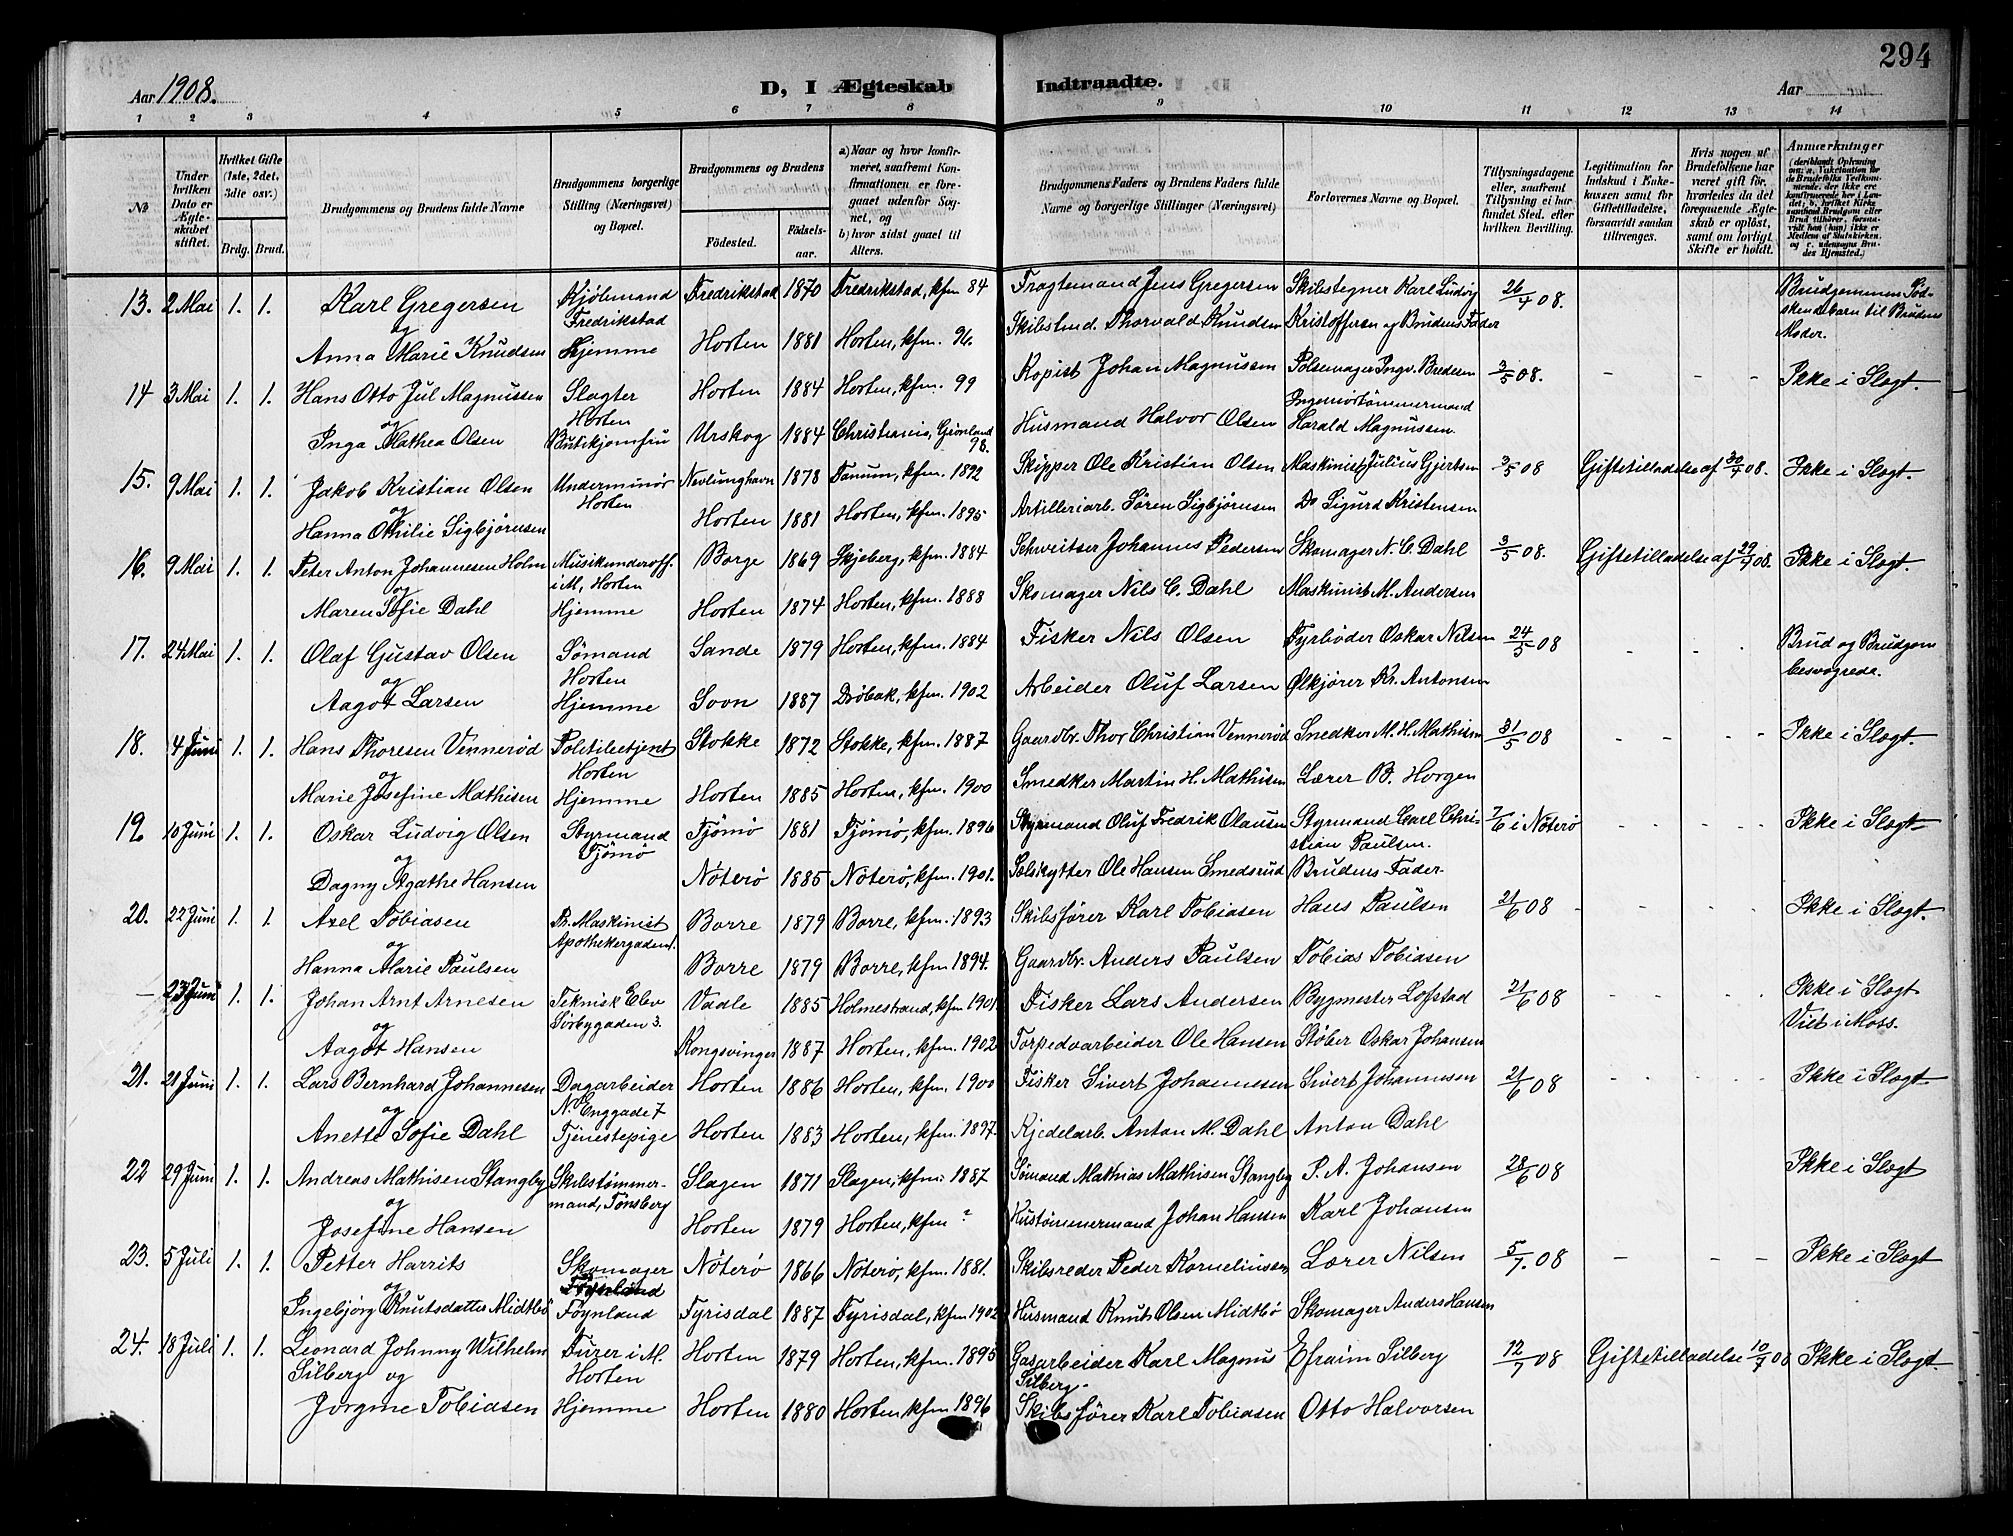 294
Aar 1908.
D, I Ægteskab Indtraadte.
Aar
1 2 3 4 5 6 7 8 9 10 11 12 13 14
No
Under hvilken Dato er Ægteskabet stiftet.
Hvilket Gifte (1ste, 2det, 3die osv.)
Brdg. Brud.
Brudgommens og Brudens fulde Navne
Brudgommens borgerlige Stilling (Næringsvei) og Bopæl.
Brudgommens og Brudens
Fødested. Fødselsaar.
a) Naar og hvor konfirmeret, saafremt Konfirmationen er foregaaet udenfor Sognet, og
b) hvor sidst gaaet til Alters.
Brudgommens Faders og Brudens Faders fulde Navne og borgerlige Stillinger (Næringsvei)
Forlovernes Navne og Bopæl.
Tillysningsdagene eller, saafremt Tillysning ei har fundet Sted, efter hvilken Bevilling.
Legitimation for Indskud i Enkekassen samt for Giftetilladelse, forsaavidt saadan tiltrænges.
Hvis nogen af Brudefolkene har været gift før, hvorledes da det foregaaende Ægteskab er opløst, samt om lovligt Skifte er holdt.
Anmærkninger
13. 2 Mai 1. 1. Karl Gregersen Kjøbmand Fredrikstad Fredrikstad 1870 Fredrikstad, kfm 84 Fragtemand Jens Gregersen Skibsegner Karl Ludvig 26/4 08. Brudgommen Sødskendebarn til Brudens Moder.
og
Anna Marie Knudsen Hjemme Horten 1881 Horten, kfm. 96. Skibstmd. Thorvald Knudsen Kristoffersen og Brudens Fader
14 3 Mai 1. 1. Hans Otto Jul Magnussen Slagter Horten Horten 1884 Horten, kfm. 99 Kopist Johan Magnussen Pølsemager Ingv. Bredesen 3/5 08. - - - Ikke i Slægt.
og
Inga Mathea Olsen Butikjomfru Urskog 1884 Christiania, Grønland 98. Husmand Halvor Olsen Ingeniørtømmermand Harald Magnussen.
15. 9 Mai 1. 1. Jakob Kristian Olsen Underminør Horten Nevlunghavn 1878 Tanum, kfm. 1892 Skipper Ole Kristian Olsen Maskinist Julius Gjertsen 3/5 08 Giftetilladelse af 30/4 08. Ikke i Slægt.
og
Hanna Othilie Sigbjørnsen Horten 1881 Horten, kfm. 1895 Artilleriarb. Søren Sigbjørnsen Do Sigurd Kristensen
16. 9 Mai 1. 1. Peter Anton Johannesen Holm Musikunderoff. i M, Horten Borge 1869 Skjeberg, kfm. 1884 Schweitser Johannes Pedersen Skomager N. C. Dahl 3/5 08. Giftetilladelse af 29/4 08. Ikke i Slægt.
og
Maren Sofie Dahl Hjemme Horten 1874 Horten, kfm. 1888 Skomager Nils C. Dahl Maskinist M. Andersen
17. 24 Mai 1. 1. Olaf Gustav Olsen Sømand Horten Sande 1879 Horten, kfm. 1884 Fisker Nils Olsen Fyrbøder Oskar Nilsen 24/5 08 - - - Brud og Brudgom besvogrede.
og
Aagot Larsen Hjemme Sovn 1887 Drøbak, kfm. 1902 Arbeider Oluf Larsen Ølkjører Kr. Antonsen
18. 4 Juni 1. 1. Hans Thoresen Vennerød Politibetjent Horten Stokke 1872 Stokke, kfm. 1887 Gaardbr. Thor Christian Vennerød Snedker M. H. Mathisen 31/5 08 - - - Ikke i Slægt.
og
Marie Josefine Mathisen Hjemme Horten 1885 Horten, kfm. 1900 Smedker Martin H. Mathisen Lærer B. Horgen
19 10 Juni 1. 1. Oskar Ludvig Olsen Styrmand Tjømø Tjømø 1881 Tjømø, kfm. 1896 Styrmand Oluf Fredrik Olausen Styrmand Carl Christian Paulsen. 7/6 i Nøterø - - - Ikke i Slægt
og
Dagny Agathe Hansen Nøterø 1885 Nøterø, kfm. 1901. Selskytter Ole Hansen Smedsrud Brudens Fader
20. 22 Juni 1. 1. Axel Tobiasen Maskinist Apothekergaden 1. Borre 1879 Borre, kfm. 1893 Skibsfører Karl Tobiasen Hans Paulsen 21/6 08 - - - Ikke i Slægt.
og
Hanna Marie Paulsen Borre 1879 Borre, kfm. 1894. Gaardbr. Anders Paulsen Tobias Tobiasen
- 23 Juni 1. 1. Johan Arnt Arnesen Teknisk Elev Sørbygaden 3. Vaale 1885 Holmestrand, kfm. 1901. Fisker Lars Andersen Bygmester Lofstad 21/6 08 - - - Ikke i Slægt Viet i Moss.
og
Aagot Hansen Kongsvinger 1887 Horten, kfm. 1902 Torpedoarbeider Ole Hansen Støber Oskar Johansen
21. 21 Juni 1. 1. Lars Bernhard Johannesen Dagarbeider N. Enggade 7 Horten 1886 Horten, kfm. 1900 Fisker Sivert Johannesen Sivert Johannesen 21/6 08 - - - Ikke i Slægt
og
Anette Sofie Dahl Tjenestepige Horten 1883 Horten, kfm. 1897. Kjedelarb. Anton M. Dahl Anton Dahl
22 29 Juni 1. 1. Andreas Mathisen Stangeby Skibstømmermand, Tønsberg Slagen 1871 Slagen, kfm. 1887 Sømand Mathias Mathisen Stangeby P. A. Johansen 28/6 08 Ikke i Slægt
og
Josefine Hansen Horten 1879 Horten, kfm ? Hustømmermand Johan Hansen Karl Johansen
23. 5 Juli 1. 1. Petter Harrits Skomager Nøterø 1866 Nøterø, kfm. 1881. Skibsreder Peder Kornelinssen Lærer Nilsen 5/7. 08 - - - Ikke i Slægt
og
Ingebjørg Knutsdatter Midtbø Føynland Fyrisdal 1887 Fyrisdal, kfm 1902 Husmand Knut Olsen Midtbø Skomager Anders Hansen
24. 18 Juli 1. 1. Leonard Johnny Wilhelm Silberg og Furer i M. Horten Horten 1879 Horten, kfm. 1895 Gasarbeider Karl Magnus Silberg. Efraim Silberg 12/7 08 Giftetilladelse 10/7 08 Ikke i Slægt.
Jørgine Tobiasen Hjemme Horten 1880 Horten, kfm 1896 Skibsfører Karl Tobiasen Otto Halvorsen